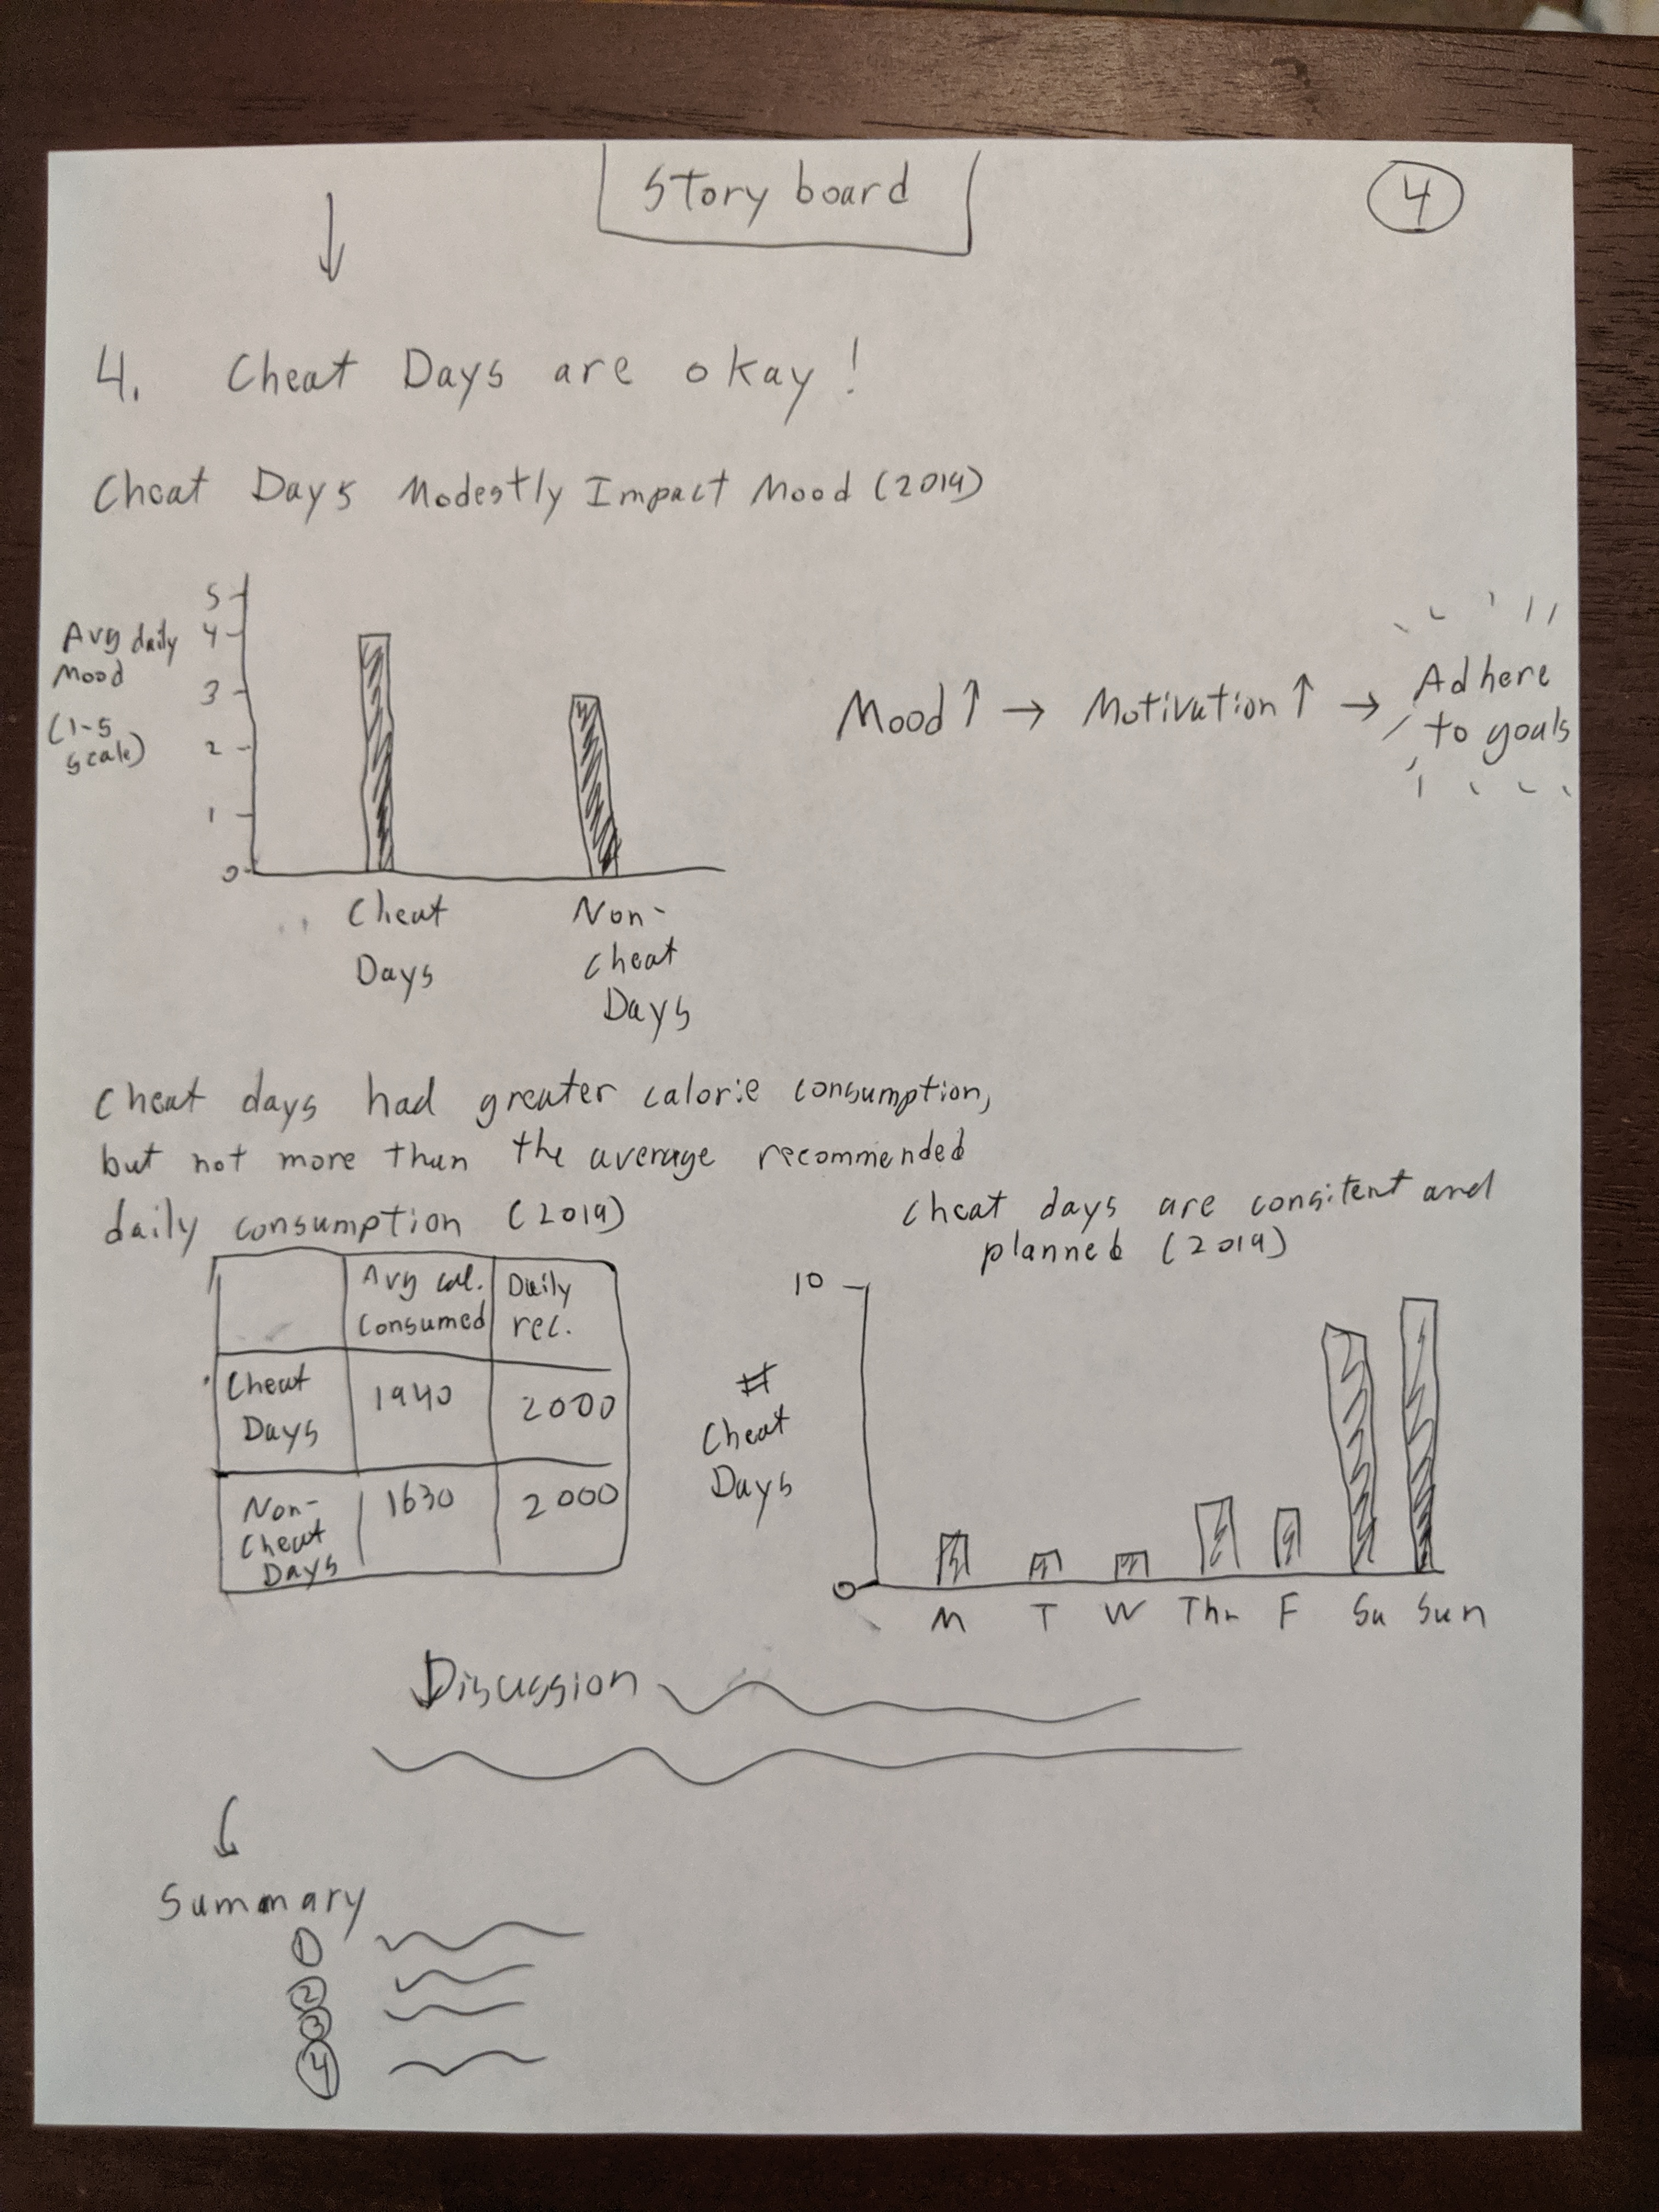 Story board
4
4. Cheat Days are okay!
Cheat Days Modestly Impact Mood (2019)
Avg daily
Mood
(1-5
scale)
5
4
3
2
1
0
Cheat
Days
Non-
Cheat
Days
Mood ↑ → Motivation ↑ → Adhere
to goals
Cheat days had greater calorie consumption,
but not more than the average recommended
daily consumption (2019)
Avg cal.
Consumed
Daily
rec.
Cheat
Days
1940
2000
Non-
Cheat
Days
1630
2000
Cheat days are consitent and
planned (2019)
10
#
Cheat
Days
0
M T W Thr F Sa Sun
Discussion
Summary
1
2
3
4